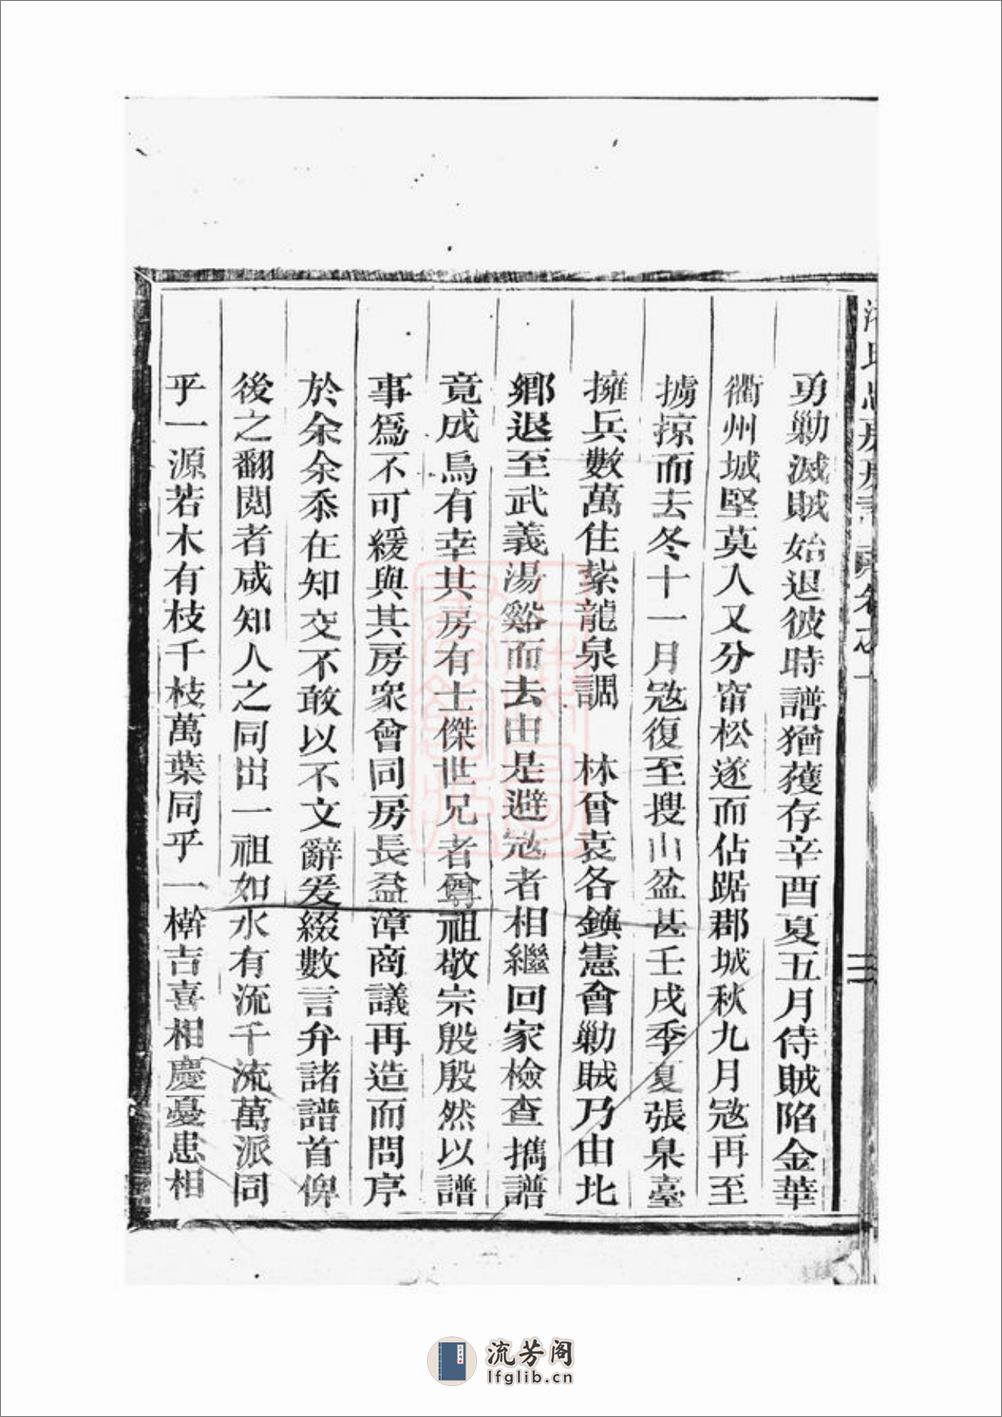 勇勦滅賊始退彼時譜猶獲存辛酉夏五月侍賊陷金華
衢州城堅莫入又分竄松遂而佔踞郡城秋九月冦再至
擄掠而去冬十一月冦復至搜山盆甚壬戌季夏張臬臺
擁兵數萬住紮龍泉調　林曾袁各鎮憲會勦賊乃由北
鄉退至武義湯谿而去由是避冦者相繼回家檢查攜譜
竟成烏有幸其房有士傑世兄者尊祖敬宗殷殷然以譜
事爲不可緩與其房衆會同房長益漳商議再造而問序
於余余忝在知交不敢以不文辭爰綴數言弁諸譜首俾
後之翻閲者咸知人之同出一祖如水有流千流萬派同
乎一源若木有枝千枝萬葉同乎一榦吉喜相慶憂患相
三
流芳阁
lfglib.cn